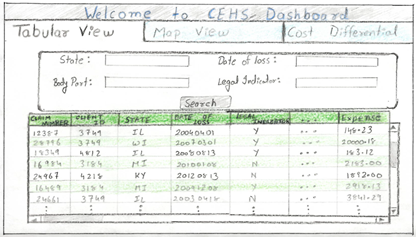 Welcome to CEHS- Dashboard
Tabular View Map View Cost Differential
State: Date of loss:
Body Part: Legal Indicator:
Search
CLAIM NUMBER CLIENT ID STATE DATE OF LOSS LEGAL INDICATOR ... EXPENSE
12387 3749 IL 20040401 Y 148.23
28976 3749 WI 20070301 Y 20000.18
18349 4812 IL 20080813 Y 183.12
16984 3184 MI 20100108 N 2183.00
24967 4218 KY 20120813 N 1892.00
16489 3184 MI 20091208 Y 2918.13
24661 3749 IL 20030418 N 3841.29